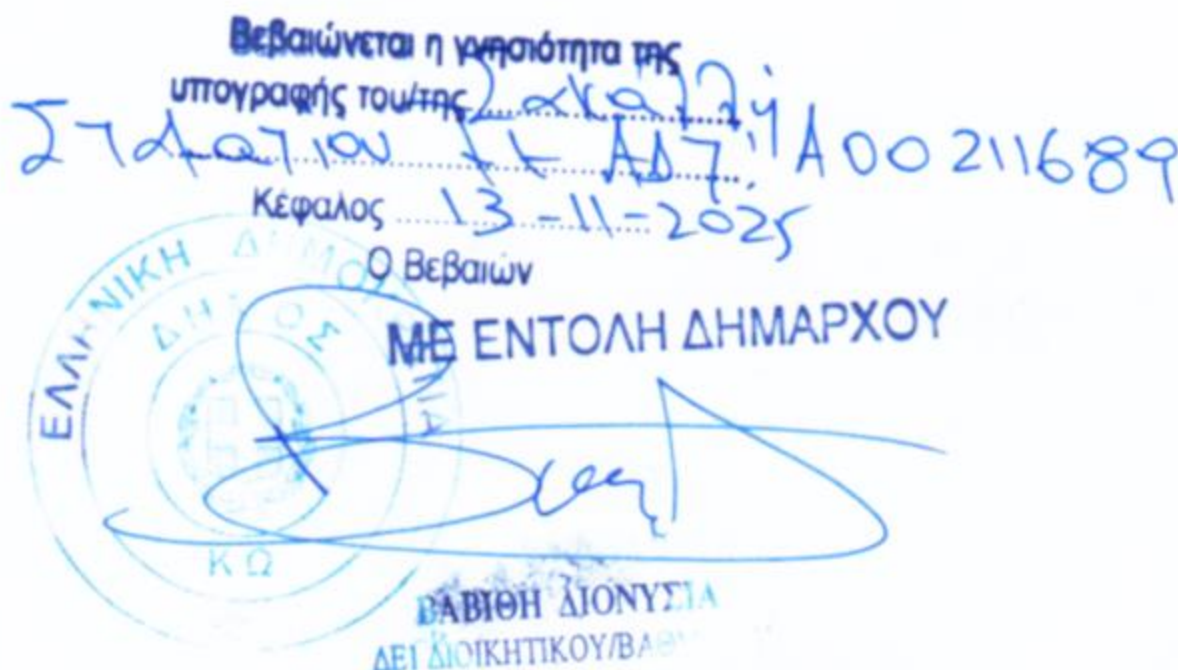 Βεβαιώνεται η γνησιότητα της
υπογραφής του/της Σακαλλή
Σταματίου ΑΔΤ: Α00211689
Κέφαλος 13-11-2025
Ο Βεβαιών
ΜΕ ΕΝΤΟΛΗ ΔΗΜΑΡΧΟΥ
ΕΛΛΗΝΙΚΗ ΔΗΜΟΚΡΑΤΙΑ
ΔΗΜΟΣ
ΚΩ
ΒΑΒΙΘΗ ΔΙΟΝΥΣΙΑ
ΔΕ1 ΔΙΟΙΚΗΤΙΚΟΥ/ΒΑΘ